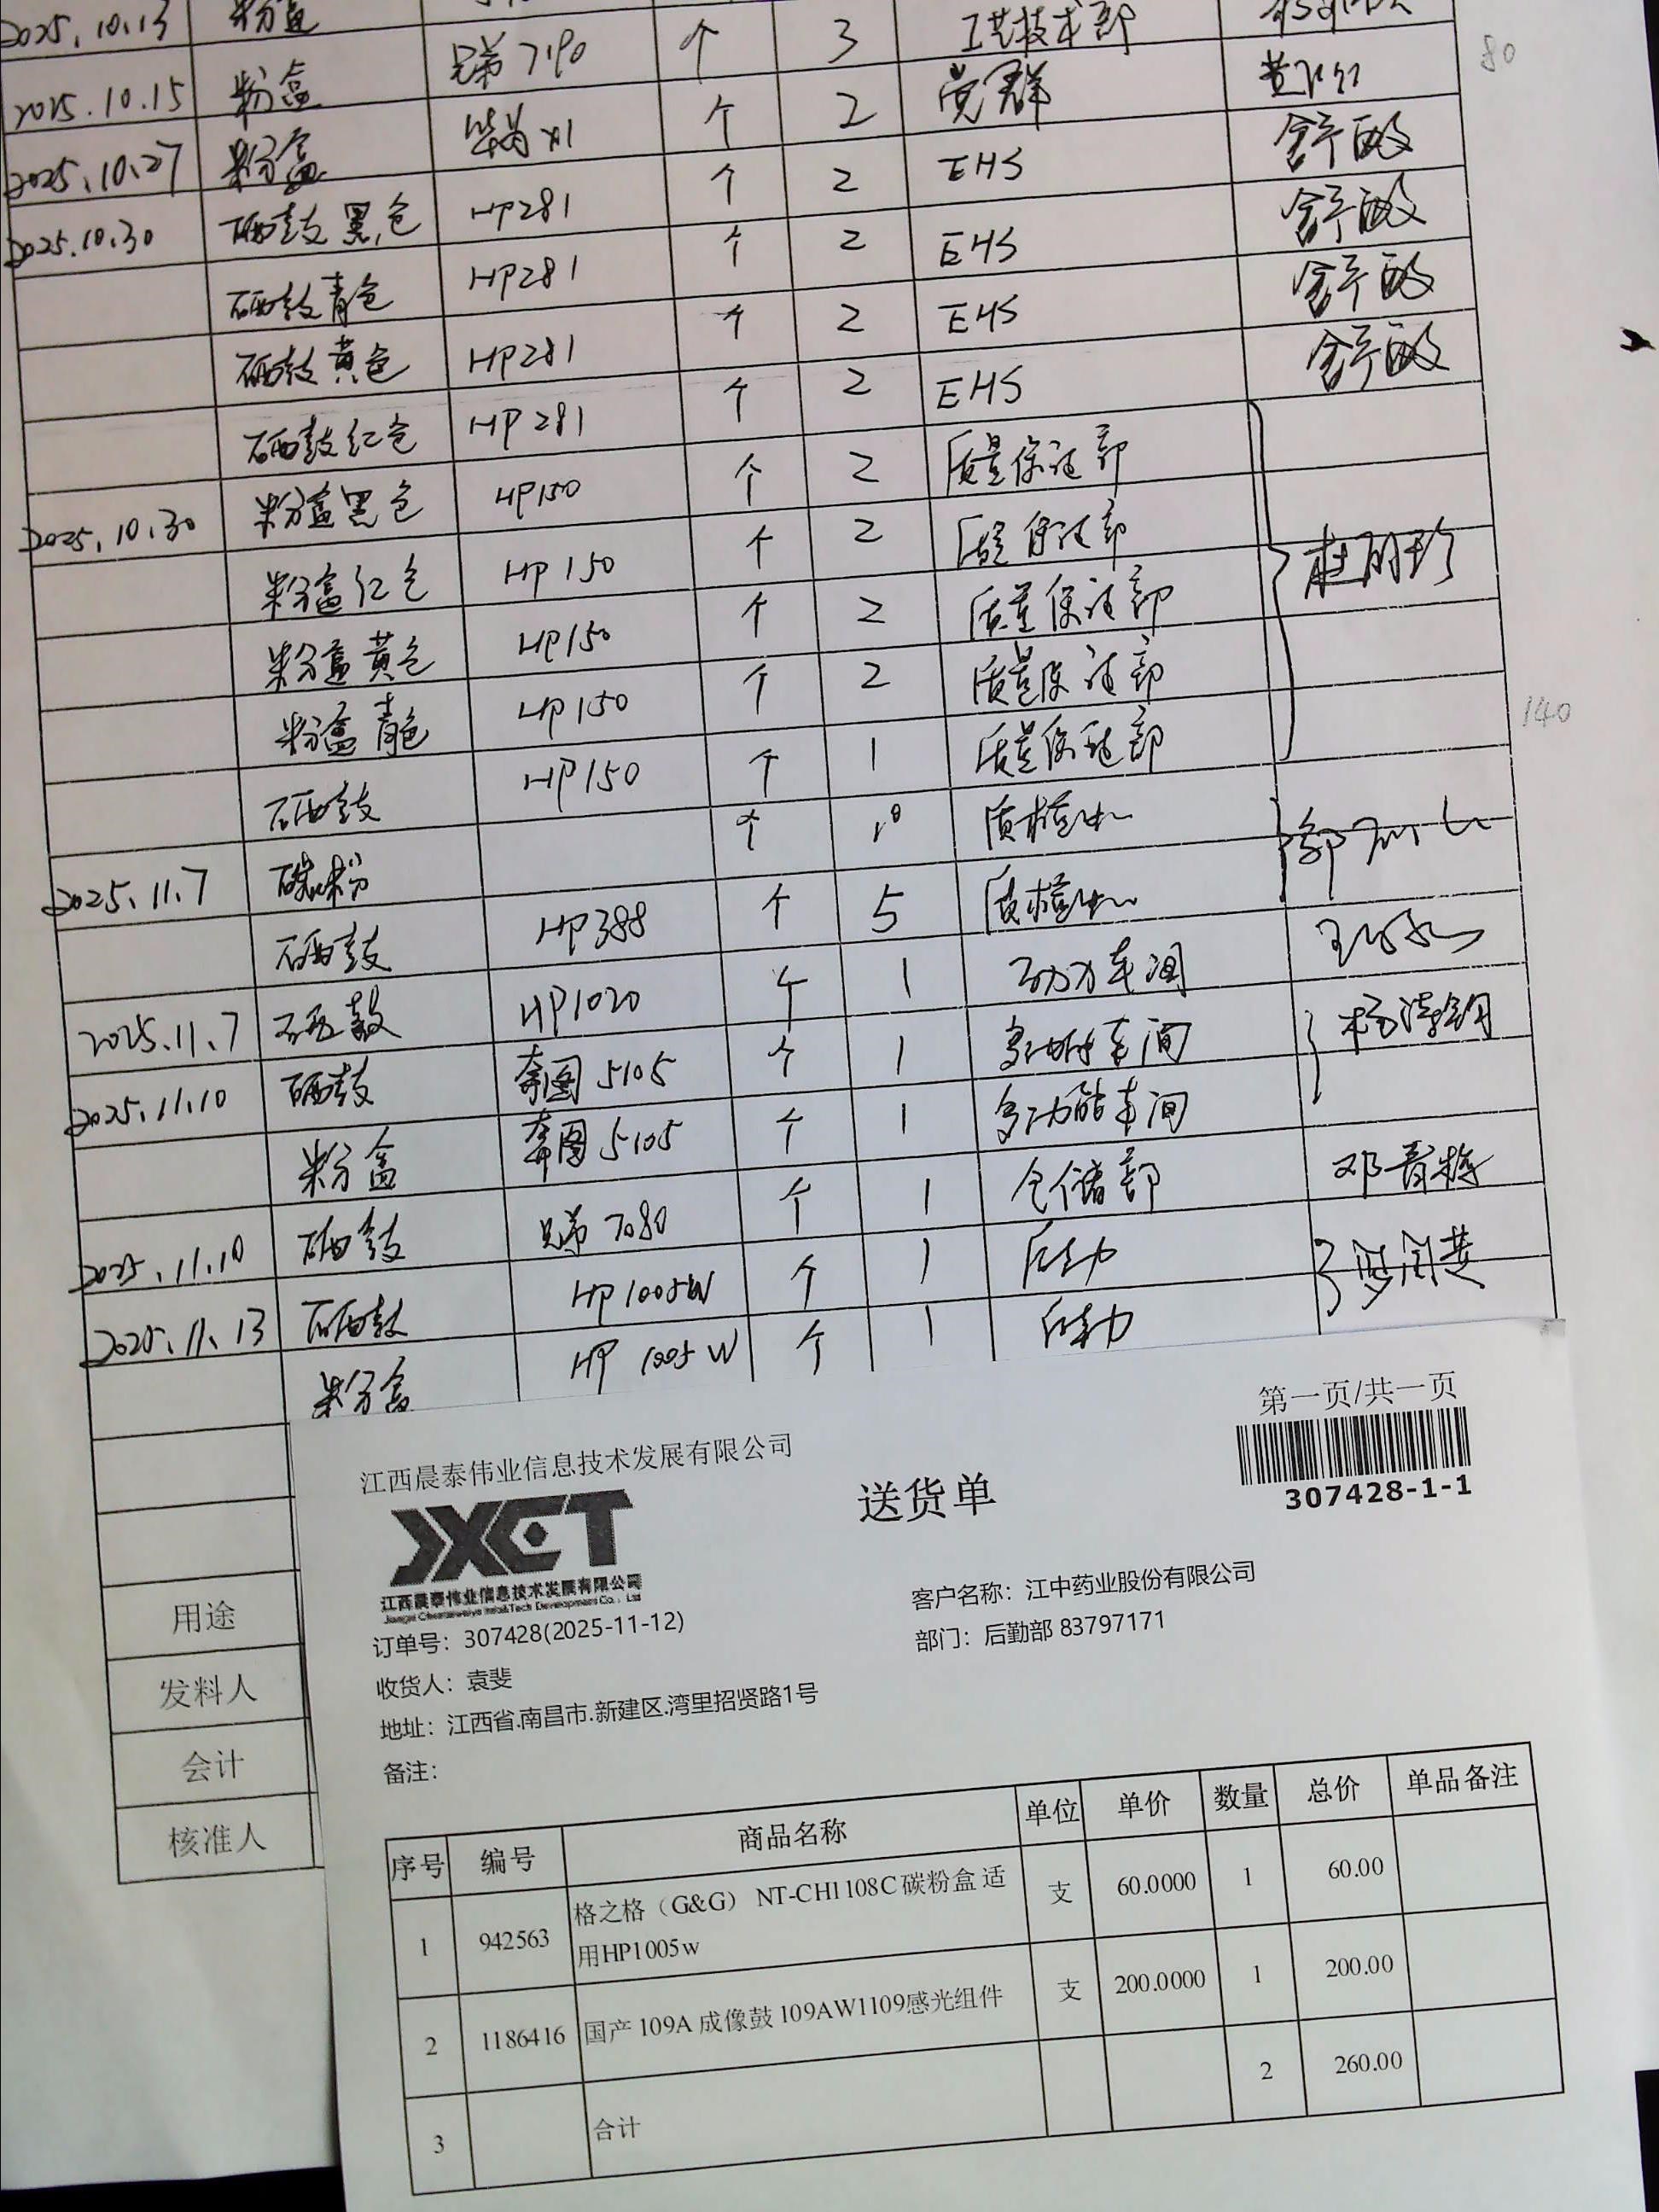 2025.10.13 粉盒 个 3 工艺技术部
2025.10.15 粉盒 兄弟7190 个 2 党群 80
2025.10.27 粉盒 个 2 EHS 舒
2025.10.30 硒鼓黑色 HP281 个 2 EHS 舒
硒鼓青色 HP281 个 2 EHS 舒
硒鼓黄色 HP281 个 2 EHS 舒
硒鼓红色 HP281 个 2 质量保证部
2025.10.30 粉盒黑色 HP150 个 2 质量保证部
粉盒红色 HP150 个 2 质量保证部
粉盒黄色 HP150 个 2 质量保证部
粉盒青色 HP150 个 1 质量保证部 140
硒鼓 HP150 个 质检中心
2025.11.7 碳粉 个 5 质检中心
硒鼓 HP388 个 1 动力车间
2025.11.7 硒鼓 HP1020 个 1 多功能车间
2025.11.10 硒鼓 奔图5105 个 1 多功能车间
粉盒 奔图5105 个 1 仓储部
2025.11.10 硒鼓 兄弟7080 个 1 后勤
2025.11.13 硒鼓 HP1005W 个 1 后勤
粉盒 HP 1005W
用途
发料人
会计
核准人
第一页/共一页
江西晨泰伟业信息技术发展有限公司
送货单
307428-1-1
JXCT
江西晨泰伟业信息技术发展有限公司
订单号：307428(2025-11-12)
客户名称：江中药业股份有限公司
收货人：袁斐
部门：后勤部 83797171
地址：江西省.南昌市.新建区.湾里招贤路1号
备注：
序号 编号 商品名称 单位 单价 数量 总价 单品备注
1 942563 格之格（G&G） NT-CH1108C 碳粉盒 适
用HP1005w 支 60.0000 1 60.00
2 1186416 国产 109A 成像鼓 109AW1109感光组件 支 200.0000 1 200.00
3 合计 2 260.00